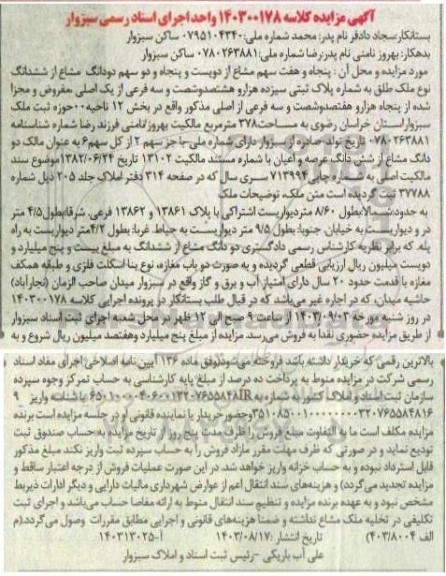 آگهی مزایده کلاسه ۱۴۰۳۰۰۱۷۸ واحد اجرای اسناد رسمی سبزوار
بستانکار: سجاد دادفر نام پدر: محمد شماره ملی: ۰۷۹۵۱۰۴۳۴۰ ساکن سبزوار
بدهکار: بهروز نامنی نام پدر: رضا شماره ملی: ۰۷۸۰۲۶۳۸۸۱ ساکن سبزوار
مورد مزایده و محل آن: پنجاه و هفت سهم مشاع از دویست و پنجاه و دو سهم دودانگ مشاع از ششدانگ
نوع ملک طلق به شماره پلاک ثبتی سیزده هزارو هشتصدوشصت و سه فرعی از یک اصلی مفروض و مجزا
شده از پنجاه هزارو هفتصدوشصت و سه فرعی از اصلی مذکور واقع در بخش ۱۲ ناحیه۰۰ حوزه ثبت ملک
سبزوار استان خراسان رضوی به مساحت ۳۷۸ مترمربع مالکیت بهروز نامنی فرزند رضا شماره شناسنامه
۰۷۸۰۲۶۳۸۸۱ تاریخ تولد صادره از سبزوار دارای شماره ملی با جز سهم ۲ از کل سهم ۶ به عنوان مالک دو
دانگ مشاع از شش دانگ عرصه و اعیان با شماره مستند مالکیت ۱۳۱۰۲ تاریخ ۱۳۸۲/۰۶/۲۴ موضوع سند
مالکیت اصلی به شماره چاپی ۷۱۳۹۹۴ سری سال که در صفحه ۳۱۴ دفتر املاک جلد ۲۰۵ ذیل شماره
۳۷۷۸۸ ثبت گردیده است متن ملک، توضیحات ملک
به حدود: شمالا: بطول ۸/۶۰ متر دیواریست اشتراکی با پلاک ۱۳۸۶۱ و ۱۳۸۶۲ فرعی. شرقا: بطول ۴/۵ متر
در و دیواریست به خیابان. جنوبا: بطول ۹/۵ متر دیواریست به حیاط. غربا: بطول ۴/۲ متر دیواریست به راه
پله. که برابر نظریه کارشناس رسمی دادگستری دو دانگ مشاع از ششدانگ به مبلغ بیست و پنج میلیارد و
دویست میلیون ریال ارزیابی قطعی گردیده و به صورت دو باب مغازه، نوع بنا اسکلت فلزی و طبقه همکف
مغازه با قدمت حدود ۲۰ سال دارای امتیاز آب و برق و گاز واقع در سبزوار میدان صاحب الزمان (نجارآباد)
حاشیه میدان، که در اجاره غیر می‌باشد که در قبال طلب بستانکار در پرونده اجرایی کلاسه ۱۴۰۳۰۰۱۷۸
در روز شنبه مورخه ۱۴۰۳/۰۹/۰۳ از ساعت ۹ صبح الی ۱۲ ظهر در محل شعبه اجرای ثبت اسناد سبزوار
از طریق مزایده حضوری نقدا به فروش می‌رسد. مزایده از مبلغ پنج میلیارد وهفتصد میلیون ریال شروع و به
بالاترین رقمی که خریدار داشته باشد فروخته می‌شود. وفق ماده ۱۳۶ آیین نامه اصلاحی اجرای مفاد اسناد
رسمی شرکت در مزایده منوط به پرداخت ده درصد از مبلغ پایه کارشناسی به حساب تمرکز وجوه سپرده
سازمان ثبت اسناد و املاک کشور به شماره با شناسه واریز
وحضور خریدار یا نماینده قانونی او در جلسه مزایده است برنده
مزایده مکلف است ما به التفاوت مبلغ فروش را ظرف مدت پنج روز از تاریخ مزایده به حساب صندوق ثبت
تودیع نماید و در صورتی که ظرف مهلت مقرر مازاد فروش را به حساب سپرده ثبت واریز نکند مبلغ مذکور
قابل استرداد نبوده و به حساب خزانه واریز خواهد شد. در این صورت عملیات فروش از درجه اعتبار ساقط و
مزایده تجدید می‌گردد) و هزینه‌های سند انتقال اعم از عوارض شهرداری مالیات دارایی و دیگر ادارات ذیربط
مشخص نبود و به عهده برنده مزایده و تنظیم سند انتقال منوط به ارائه مفاصا حساب می‌باشد و اجرای ثبت
تکلیفی در تخلیه ملک مشاع نداشته و ضمنا هزینه‌های قانونی و اجرایی مطابق مقررات وصول می‌گردد.(م
الف ۴۰۳/۸۰۰۴) تاریخ انتشار: ۱۴۰۳/۰۸/۱۷ آ-۱۴۰۳۱۳۰۲۵
علی آب باریکی - رئیس ثبت اسناد و املاک سبزوار